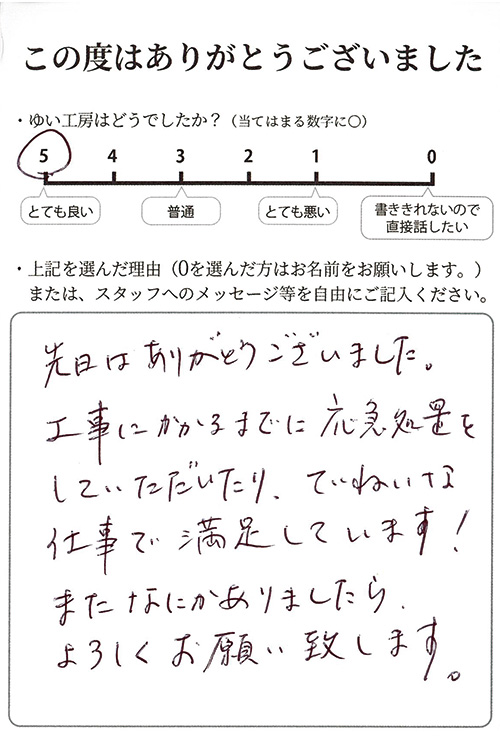 この度はありがとうございました
・ゆい工房はどうでしたか？（当てはまる数字に〇）
5 4 3 2 1 0
とても良い 普通 とても悪い 書ききれないので
直接話したい
・上記を選んだ理由（0を選んだ方はお名前をお願いします。）
または、スタッフへのメッセージ等を自由にご記入ください。
先日はありがとうございました。
工事にかかるまでに応急処置を
していただいたり、ていねいな
仕事で満足しています！
またなにかありましたら、
よろしくお願い致します。